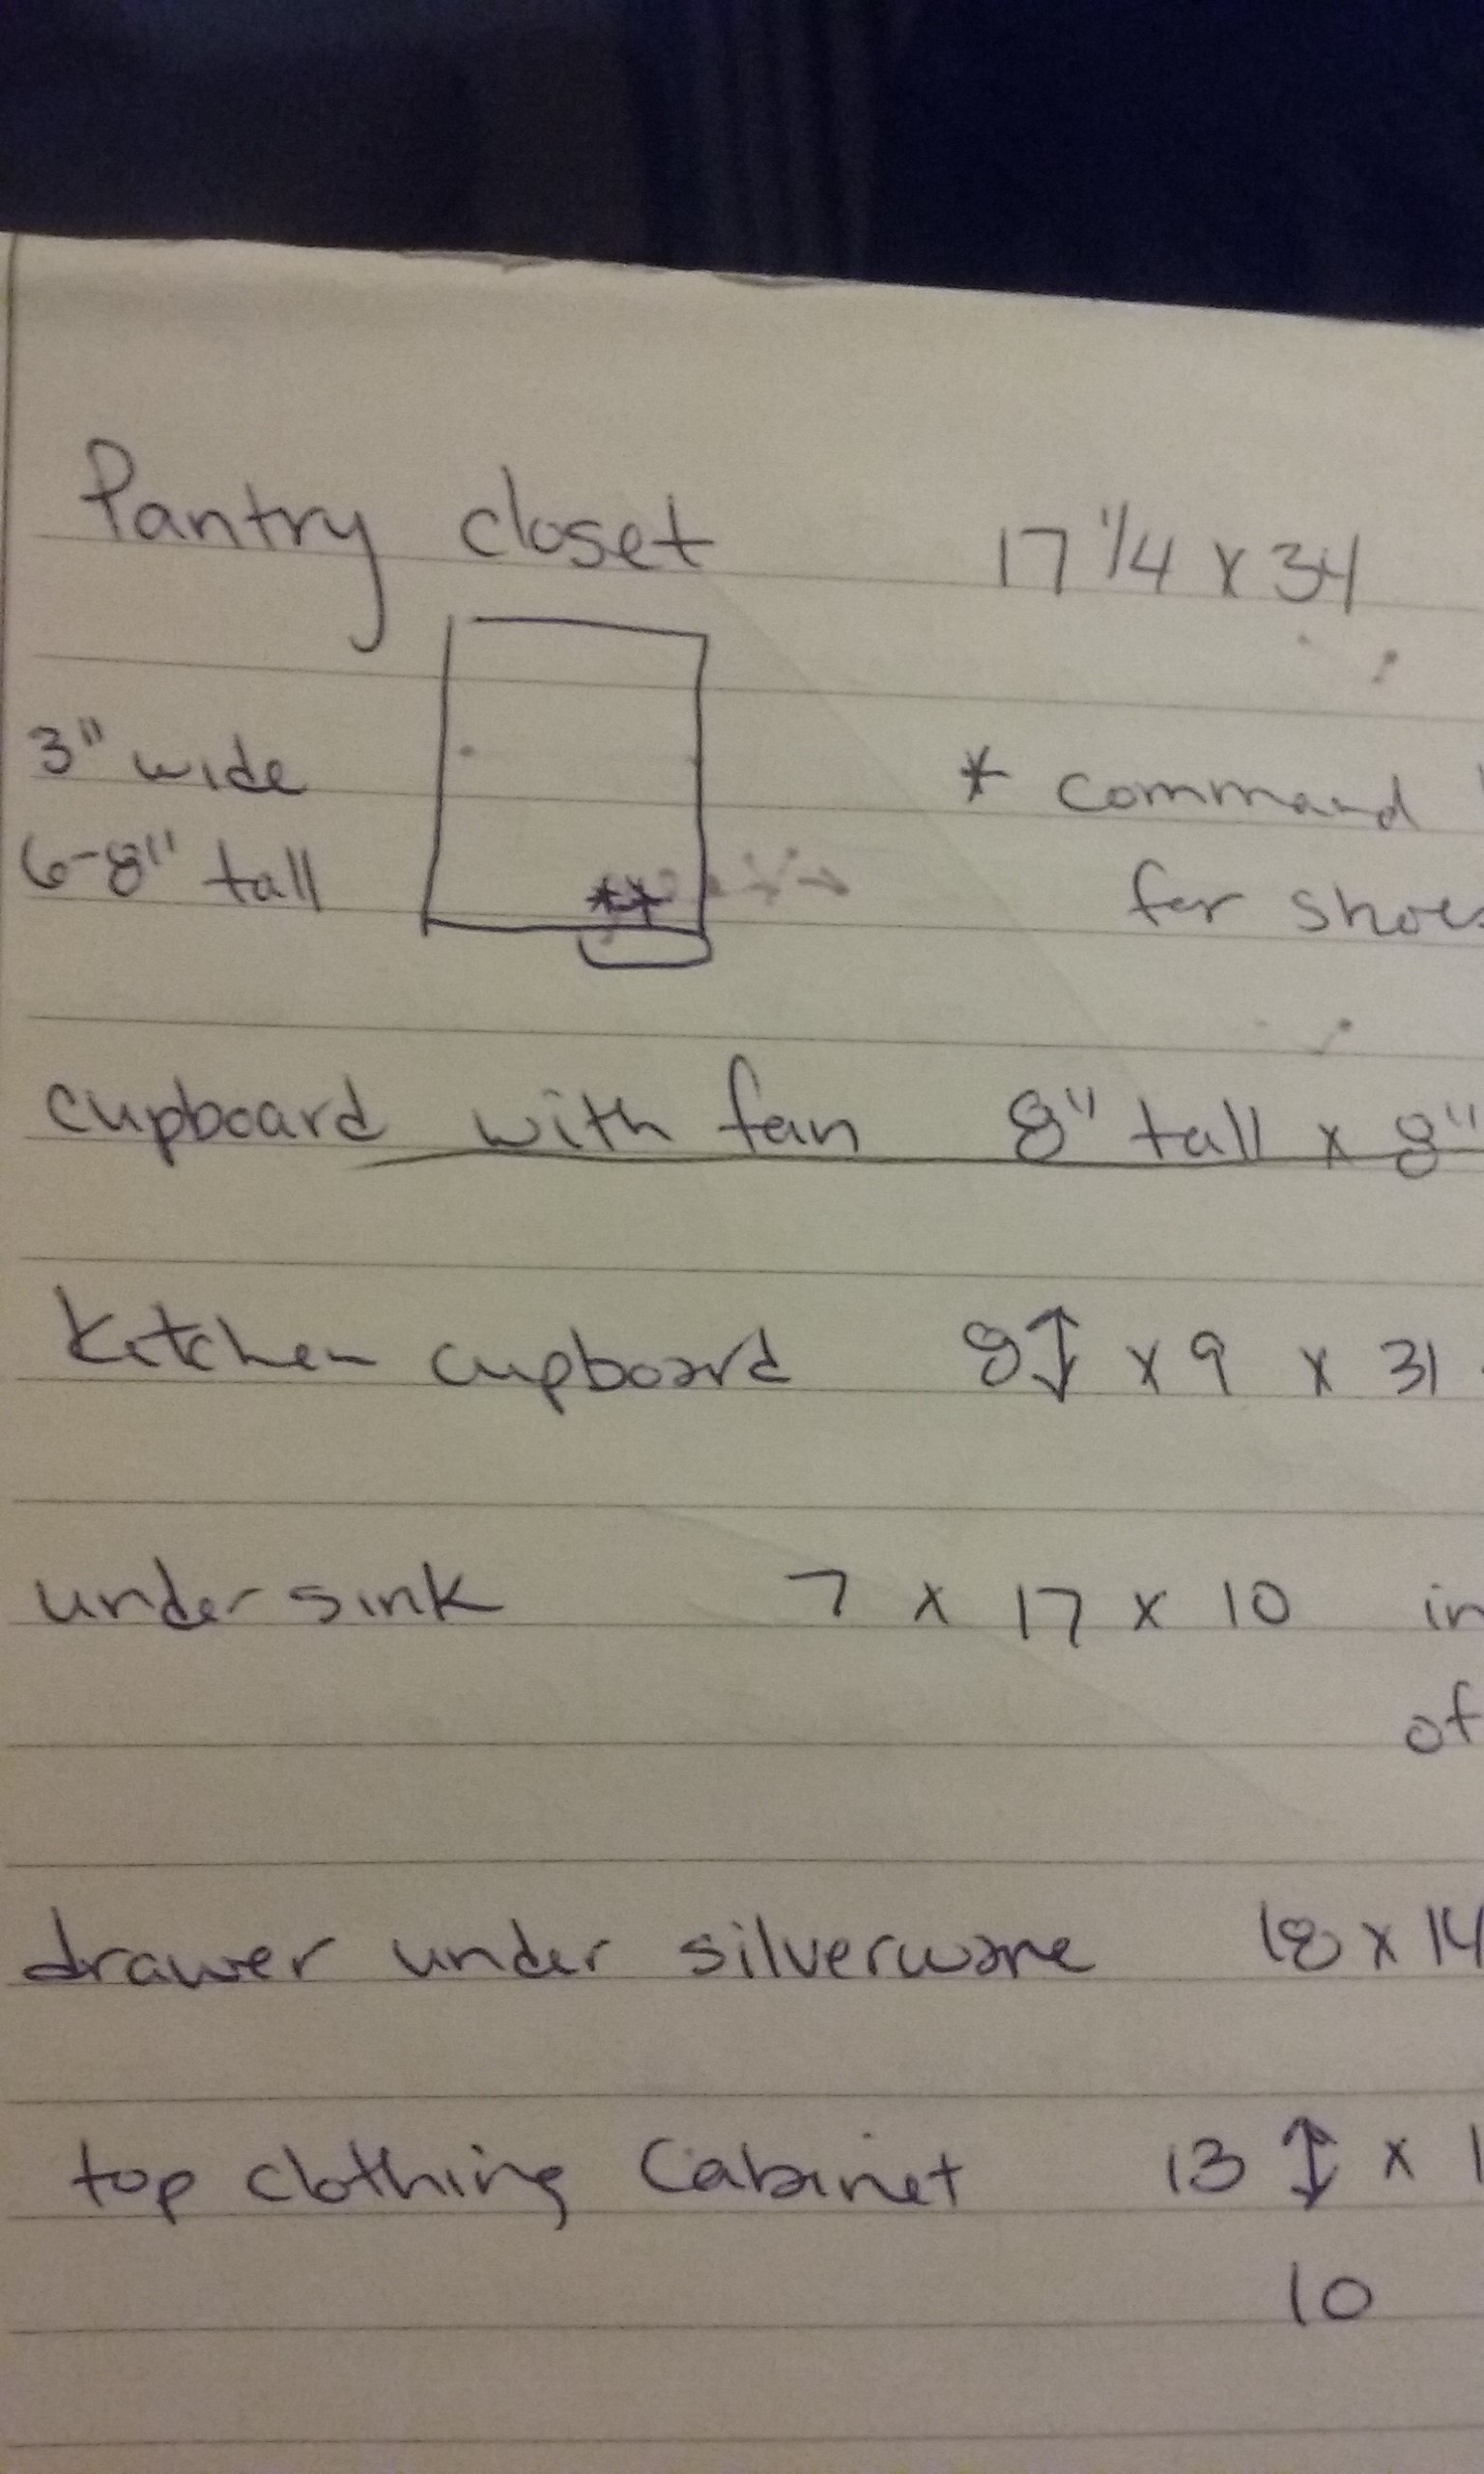 Pantry closet 17 1/4 x 34
3" wide * command
6-8" tall for shoes
**
cupboard with fan 8" tall x 8"
kitchen cupboard 8↕ x 9 x 31
under sink 7 x 17 x 10 in
of
drawer under silverware 18 x 14
top clothing Cabinet 13 ↕ x 1
10